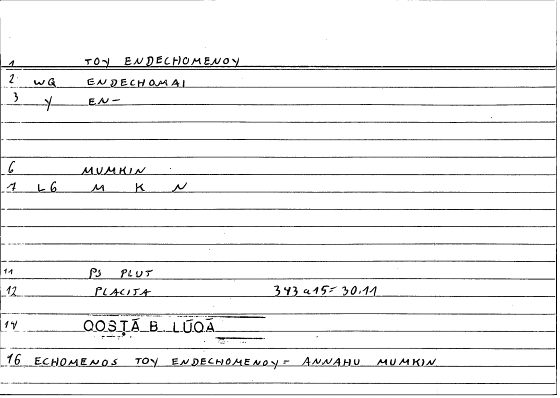 1 TOY ENDECHOMENOY
2 WQ ENDECHOMAI
3 Y EN-
6 MUMKIN
7 LG M K N
11 PS PLUT
12 PLACITA 343a15= 30.11
14 QOSṬĀ B. LŪQĀ
16 ECHOMENOS TOY ENDECHOMENOY= ANNAHU MUMKIN